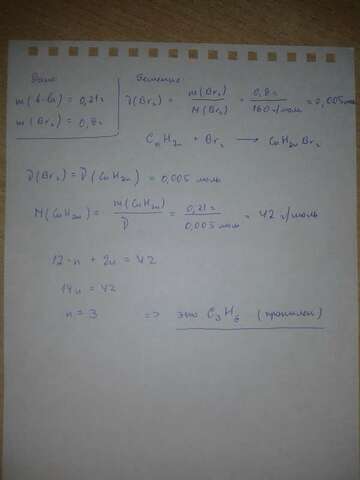 Дано
Решение
m(в-ва) = 0,21г
m(Br₂) = 0,8г
ν(Br₂) = m(Br₂)/M(Br₂) = 0,8г/160 г/моль = 0,005 моль
CnH2n + Br₂ → CnH2nBr₂
ν(Br₂) = ν(CnH2n) = 0,005 моль
M(CnH2n) = m(CnH2n)/ν = 0,21г/0,005 моль = 42 г/моль
12·n + 2n = 42
14n = 42
n = 3 => это C₃H₆ (пропилен)